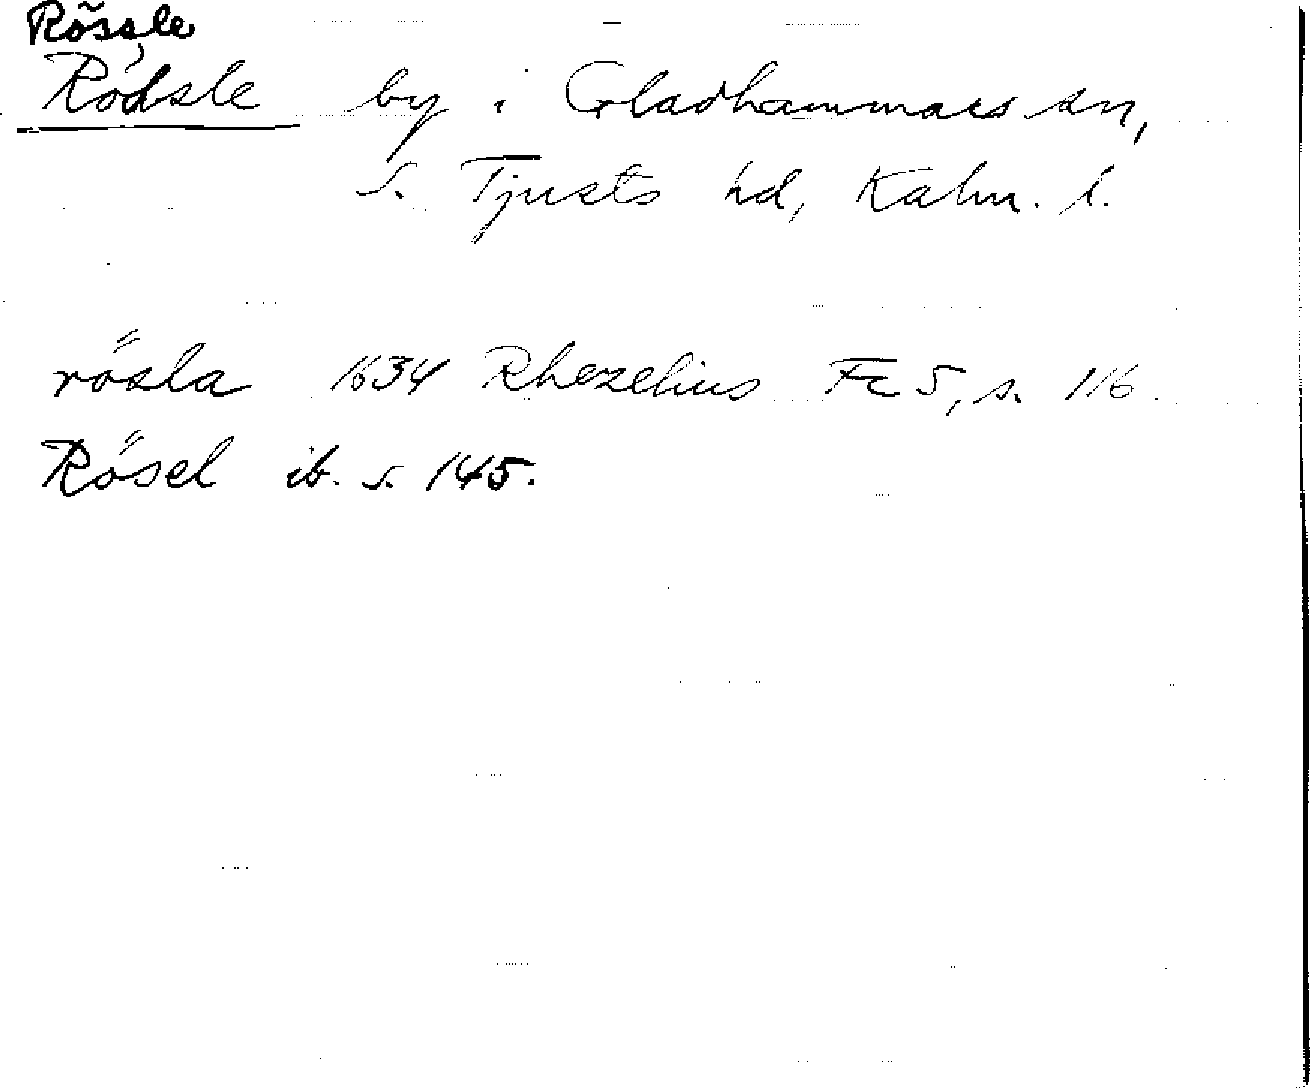 Rössle
Rödsle by i Gladhammars sn,
S. Tjusts hd, Kalm. l.
rösla 1634 Rhezelius Fc 5, s. 116.
Rösel ib. s. 145.